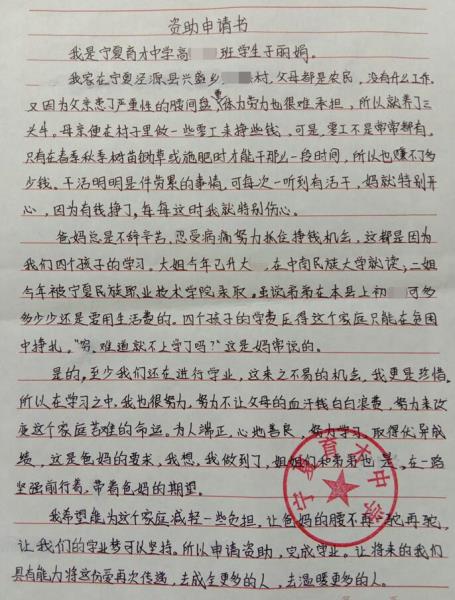 资助申请书
我是宁夏育才中学高 班学生于丽娟。
我家在宁夏泾源县兴盛乡 村,父母都是农民,没有什么工作,
又因为父亲患了严重性的腰间盘,体力劳力也很难承担,所以就养了三
头牛。母亲便在村子里做一些零工来挣些钱,可是,零工不是常常都有,
只有在春季秋季树苗锄草或施肥时才能干那么一段时间,所以也赚不了多
少钱。干活明明是件劳累的事情,可每次一听到有活干,妈就特别开
心,因为有钱挣了,每每这时我就特别伤心。
爸妈总是不辞辛苦,忍受病痛努力抓住挣钱机会,这都是因为
我们四个孩子的学习。大姐今年已升大 ,在中南民族大学就读,二姐
今年被宁夏民族职业技术学院录取。虽说弟弟在本县上初 可多
多少少还是要用生活费的。四个孩子的学费压得这个家庭只能在贫困
中挣扎。"穷,难道就不上学了吗?"这是妈常说的。
是的,至少我们还在进行学业,这来之不易的机会,我更是珍惜。
所以在学习之中,我也很努力,努力不让父母的血汗钱白白浪费,努力来改
变这个家庭苦难的命运。为人端正,心地善良,努力学习,取得优异成
绩,这是爸妈的要求,我想,我做到了,姐姐们和弟弟也是,在一路
坚强前行着,带着爸妈的期望。
我希望能为这个家庭减轻一些负担,让爸妈的腰不再驼再驼,
让我们的学业梦可以坚持。所以申请资助,完成学业。让将来的我们
具有能力将这份爱再次传递,去成全更多的人,去温暖更多的人。
宁夏育才中学